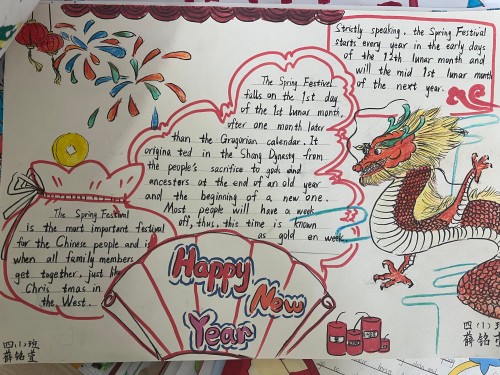 Strictly speaking, the Spring Festival
starts every year in the early days
of the 12th lunar month and
will the mid 1st lunar month
of the next year.
The Spring Festival
falls on the 1st day
of the 1st lunar month,
after one month later
than the Gregorian calendar. It
origina ted in the Shang Dynasty from
the people's sacrifice to gods and
ancestors at the end of an old year
and the beginning of a new one.
Most people will have a week
off, thus, this time is known
as gold en week.
The Spring Festival
is the most important festival
for the Chinese people and is
when all family members
get together, just like
Chris tmas in
the West.
Happy
New
Year
四(1)班
四(1)班